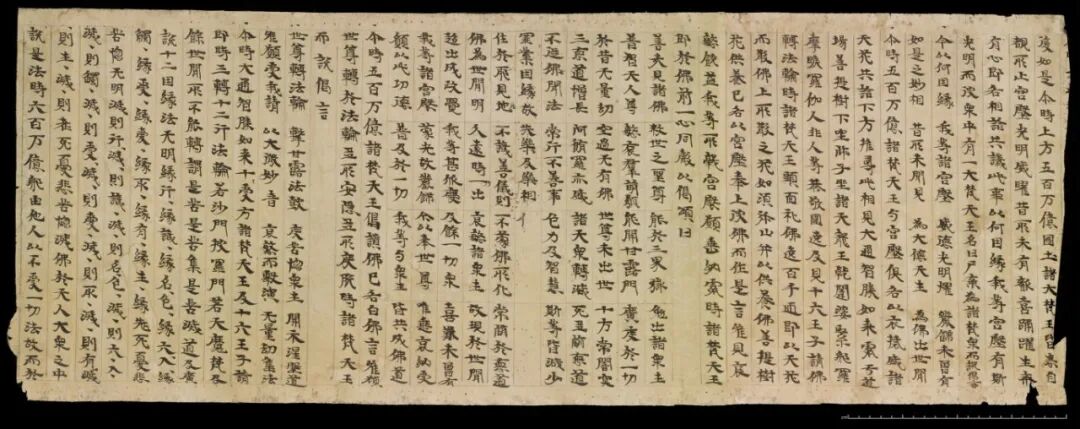 復如是尒時上方五百万億國土諸大梵王皆悉自
覩所止宮殿光明威曜昔所未有歡喜踊躍生希
有心即各相詣共議此事以何因緣我等宮殿有斯
光明而彼衆中有一大梵天王名曰尸棄為諸梵衆而說偈言
今以何因緣 我等諸宮殿 威德光明曜 嚴飾未曾有
如是之妙相 昔所未聞見 為大德天生 為佛出世間
尒時五百万億諸梵天王与宮殿俱各以衣祴盛諸
天花共詣下方推尋此相見大通智勝如來處于道
場菩提樹下坐師子座諸天龍王乾闥婆緊那羅
摩睺羅伽人非人等恭敬圍遶及見十六王子請佛
轉法輪時諸梵天王頭面礼佛遶百千迊即以天花
而散佛上所散之花如須弥山并以供養佛菩提樹
花供養已各以宮殿奉上彼佛而作是言唯見哀
愍饒益我等所獻宮殿願垂納處時諸梵天王
即於佛前一心同聲以偈頌曰
善哉見諸佛 救世之聖尊 能於三界獄 勉出諸衆生
普智天人尊 愍哀羣萌類 能開甘露門 廣度於一切
於昔无量劫 空過无有佛 世尊未出世 十方常闇冥
三惡道增長 阿脩羅亦盛 諸天衆轉減 死多墮惡道
不從佛聞法 常行不善事 色力及智慧 斯等皆減少
罪業因緣故 失樂及樂相
住於邪見法 不識善儀則 不蒙佛所化 常墮於惡道
佛為世間眼 久遠時乃出 哀愍諸衆生 故現於世間
超出成正覺 我等甚欣慶 及餘一切衆 喜歎未曾有
我等諸宮殿 蒙光故嚴飾 今以奉世尊 唯垂哀納受
願以此功德 普及於一切 我等与衆生 皆共成佛道
尒時五百万億諸梵天王偈讚佛已各白佛言唯願
世尊轉於法輪多所安隱多所度脫時諸梵天王
而說偈言
世尊轉法輪 擊甘露法鼓 度苦惱衆生 開示涅槃道
唯願受我請 以大微妙音 哀愍而敷演 无量劫集法
尒時大通智勝如來受十方諸梵天王及十六王子請
即時三轉十二行法輪若沙門婆羅門若天魔梵及
餘世間所不能轉謂是苦是苦集是苦滅道及廣
說十二因緣法无明緣行、緣識、緣名色、緣六入、緣
觸、緣受、緣愛、緣取、緣有、緣生、緣老死憂悲
苦惱无明滅則行滅、則識、滅、則名色、滅、則六入、
滅、則觸、滅、則受、滅、則愛、滅、則取、滅、則有滅
則生、滅、則老死憂悲苦惱滅佛於天人大衆之中
說是法時六百万億那由他人以不受一切法故而於